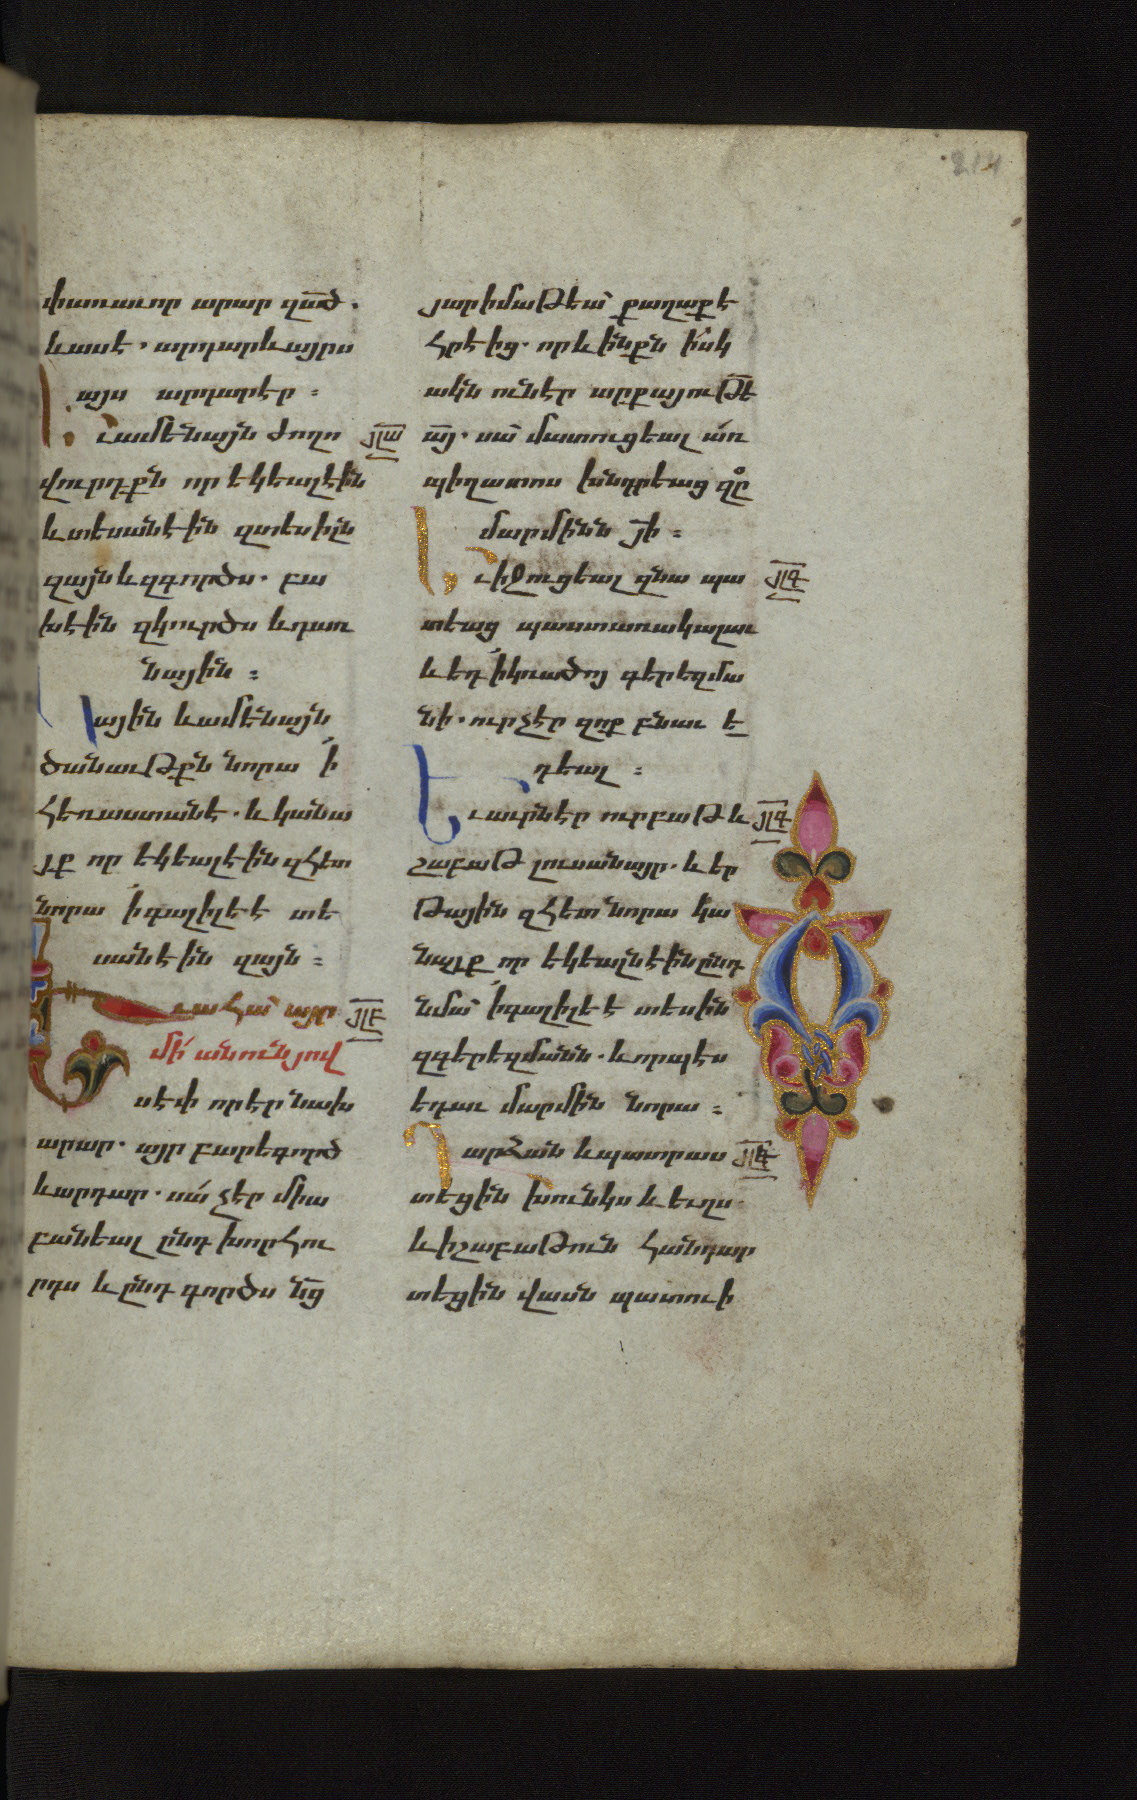 214
փառաւոր արար զա͞ծ.
և ասէ. արդարև այրս
այս արդար էր :
Եւ ամենայն ժողո
յլա
վուրդքն որ եկեալ էին
և տեսանէին զտեսիլն
զայն և զգործս. բա
խէին զկուրծս և դառ
նային :
Կային և ամենայն
ծանաւթքն նորա ի
հեռաստանէ. և կանա
յք որ եկեալ էին զհետ
նորա ի գալիլեէ տե
սանէին զայն :
Եւ ահա այր
յլբ
մի անուն յով
սէփ որ էր նախ
արար. այր բարեգործ
և արդար. սա չէր միա
բանեալ ընդ խորհու
րդս և ընդ գործս նց
յարիմաթեա քաղաքէ
հրէից. որ և ինքն իսկ
ակն ունէր արքայութե
այ. սա մատուցեալ առ
պիղատոս խնդրեաց զը
մարմինն յի :
Եւ իջուցեալ զնա պա
յլգ
տեաց պաստառակալաւ
և եդ ի կուածոյ գերեզմա
նի. ուր չէր զոք բնաւ ե
դեալ :
Եւ աւր էր ուրբաթ և
յլդ
շաբաթ լուսանայր. և եր
թային զհետ նորա կա
նայք որ եկեալն էին ընդ
նմա ի գալիլեէ տեսին
զգերեզմանն. և որպէս
եդաւ մարմին նորա :
Դարձան և պատրաս
յլե
տեցին խունկս և եւղս.
և ի շաբաթուն հանդար
տեցին վասն պատուի